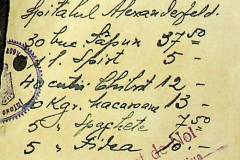 Spitalul Alexandrfeld.
30 buc. Săpun 37 50
1 l. Spirt 5 -
40 cutii Chibrit 12 -
10 Kgr. macaroane 13 -
5 " Spaghete 7 50
5 " Fidea 10 -